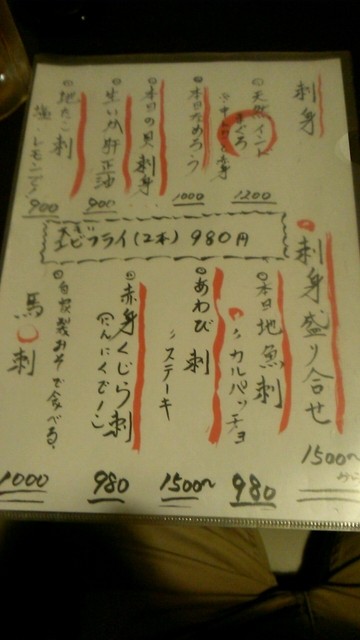 刺身
天然インド
まぐろ
1200
本日なめろう
1000
本日の貝刺身
生いか肝正油
900
地たこ刺
塩・レモンで
900
エビフライ(2本) 980円
刺身盛り合せ
1500〜
本日地魚刺
〃カルパッチョ
980
あわび刺
〃ステーキ
1500〜
赤身くじら刺
(にんにくで!)
980
自家製みそで食べる。
馬刺
1000